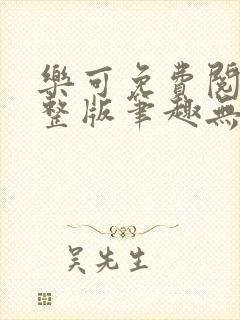 樂可免費閱
整版筆趣無
吳先生